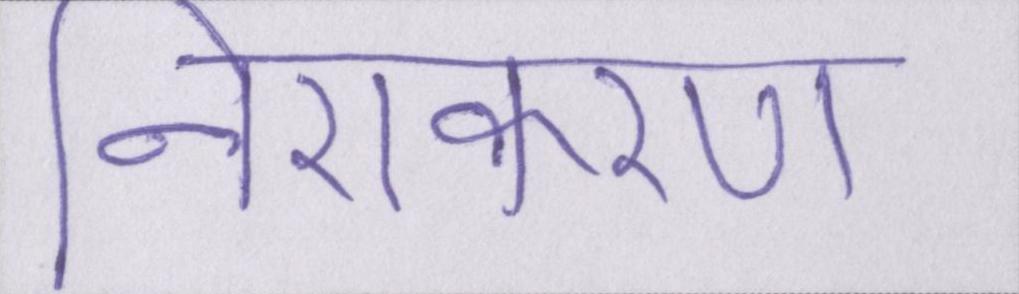 निराकरण